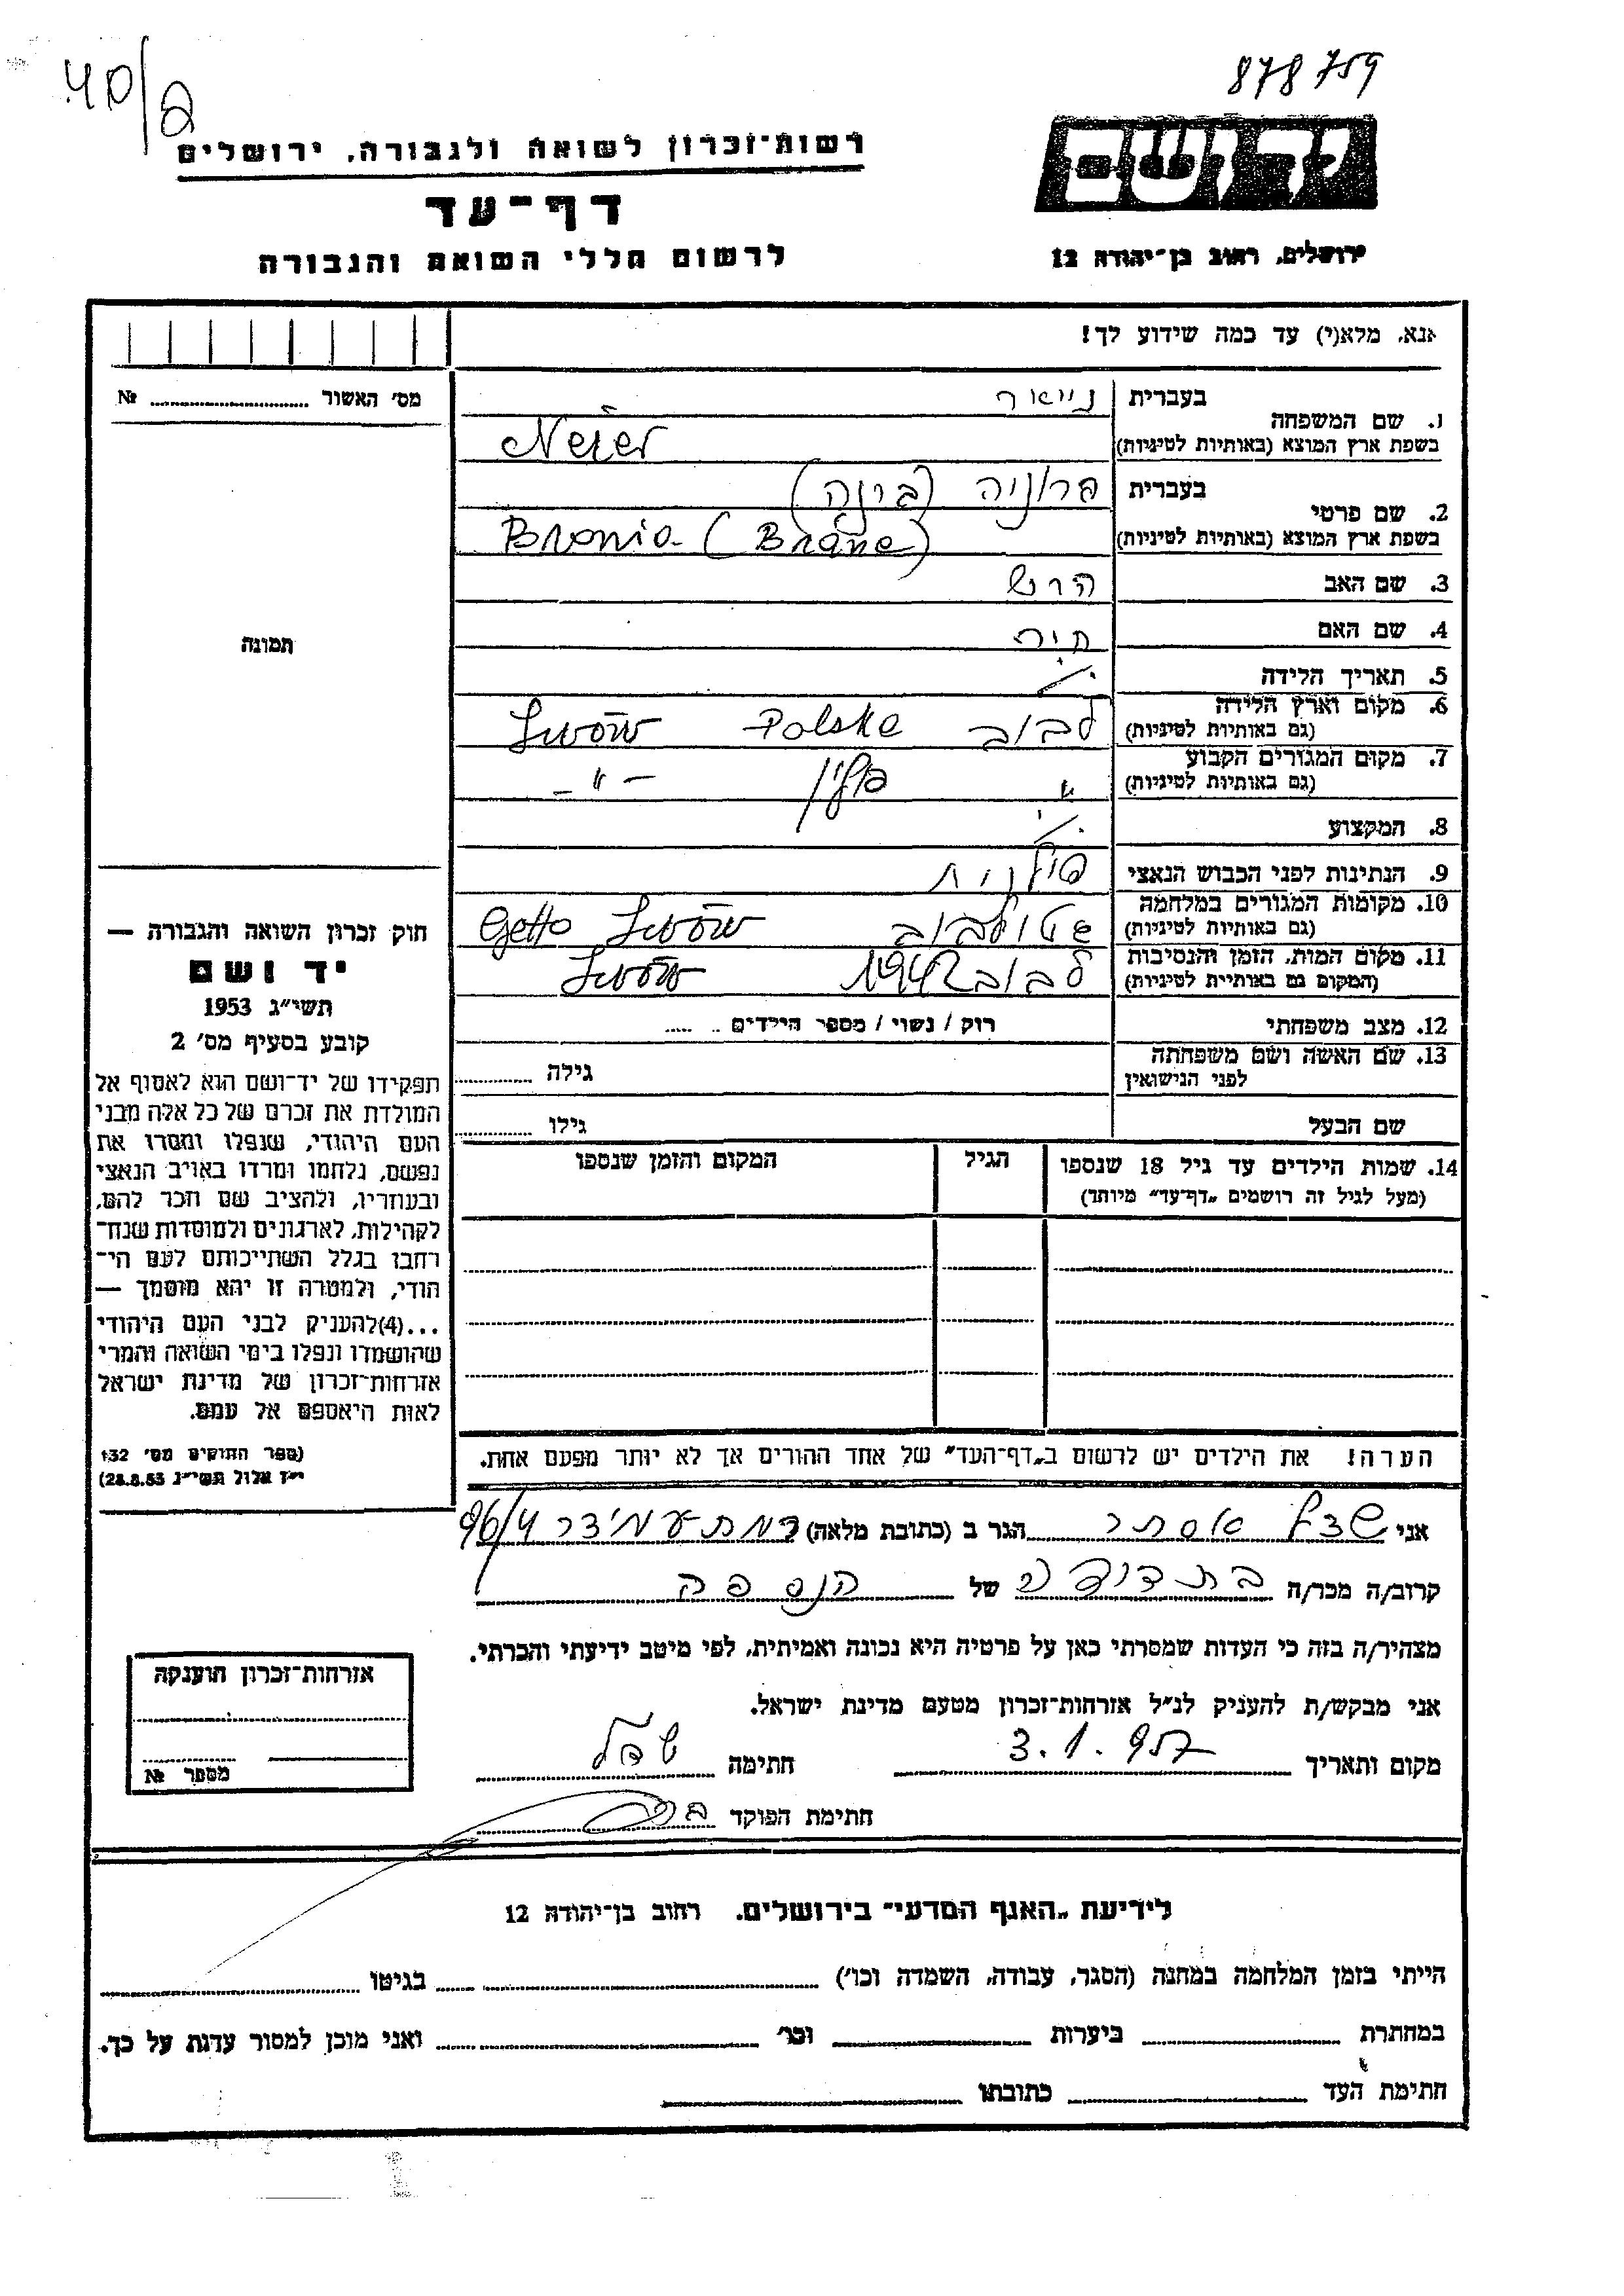 40/2
878759
רשות־זכרון לשואה ולגבורה, ירושלים
דף־עד
לרשום חללי השואה והגבורה
ירושלים, רחוב בן־יהודה 12
אנא, מלא(י) עד כמה שידוע לך!
מס׳ האשור № 
1. שם המשפחה
בעברית נייאר
בשפת ארץ המוצא (באותיות לטיניות) Neier
2. שם פרטי
בעברית ברוניה (ברנה)
בשפת ארץ המוצא (באותיות לטיניות) Bronia (Brane)
3. שם האב הרש
4. שם האם חיה
5. תאריך הלידה
6. מקום וארץ הלידה
(גם באותיות לטיניות) לבוב Polska Lwów
7. מקום המגורים הקבוע
(גם באותיות לטיניות) ״ פולין – ״ –
8. המקצוע
9. הנתינות לפני הכבוש הנאצי פולנית
10. מקומות המגורים במלחמה
(גם באותיות לטיניות) גטו לבוב Getto Lwów
11. מקום המות, הזמן והנסיבות
(המקום גם באותיות לטיניות) לבוב 1942 Lwów
12. מצב משפחתי רוק / נשוי / מספר הילדים
13. שם האשה ושם משפחתה
לפני הנישואין גילה
שם הבעל גילו
14. שמות הילדים עד גיל 18 שנספו
(מעל לגיל זה רושמים „דף־עד״ מיוחד)
הגיל
המקום והזמן שנספו
הערה! את הילדים יש לרשום ב„דף־העד״ של אחד ההורים אך לא יותר מפעם אחת.
תמונה
חוק זכרון השואה והגבורה —
יד ושם
תשי״ג 1953
קובע בסעיף מס׳ 2
תפקידו של יד־ושם הוא לאסוף אל
המולדת את זכרם של כל אלה מבני
העם היהודי, שנפלו ומסרו את
נפשם, נלחמו ומרדו באויב הנאצי
ובעוזריו, ולהציב שם וזכר להם,
לקהילות, לארגונים ולמוסדות שנח־
רבו בגלל השתייכותם לעם הי־
הודי, ולמטרה זו יהא מוסמך —
...(4) להעניק לבני העם היהודי
שהושמדו ונפלו בימי השואה והמרי
אזרחות־זכרון של מדינת ישראל
לאות היאספם אל עמם.
(ספר החוקים מס׳ 132
י״ז אלול תשי״ג 28.8.53)
אני אסתר הגר ב (כתובת מלאה) רמת עמידר 96/4
קרוב/ה מכר/ה בת דודה של הנספה
מצהיר/ה בזה כי העדות שמסרתי כאן על פרטיה היא נכונה ואמיתית, לפי מיטב ידיעתי והכרתי.
אני מבקש/ת להעניק לנ״ל אזרחות־זכרון מטעם מדינת ישראל.
מקום ותאריך 3.1.957 חתימה
חתימת הפוקד
אזרחות־זכרון הוענקה
מספר №
לידיעת „האגף המדעי״ בירושלים, רחוב בן־יהודה 12
הייתי בזמן המלחמה במחנה (הסגר, עבודה, השמדה וכו׳) בגיטו
במחתרת ביערות וכו׳ ואני מוכן למסור עדות על כך.
חתימת העד כתובתו